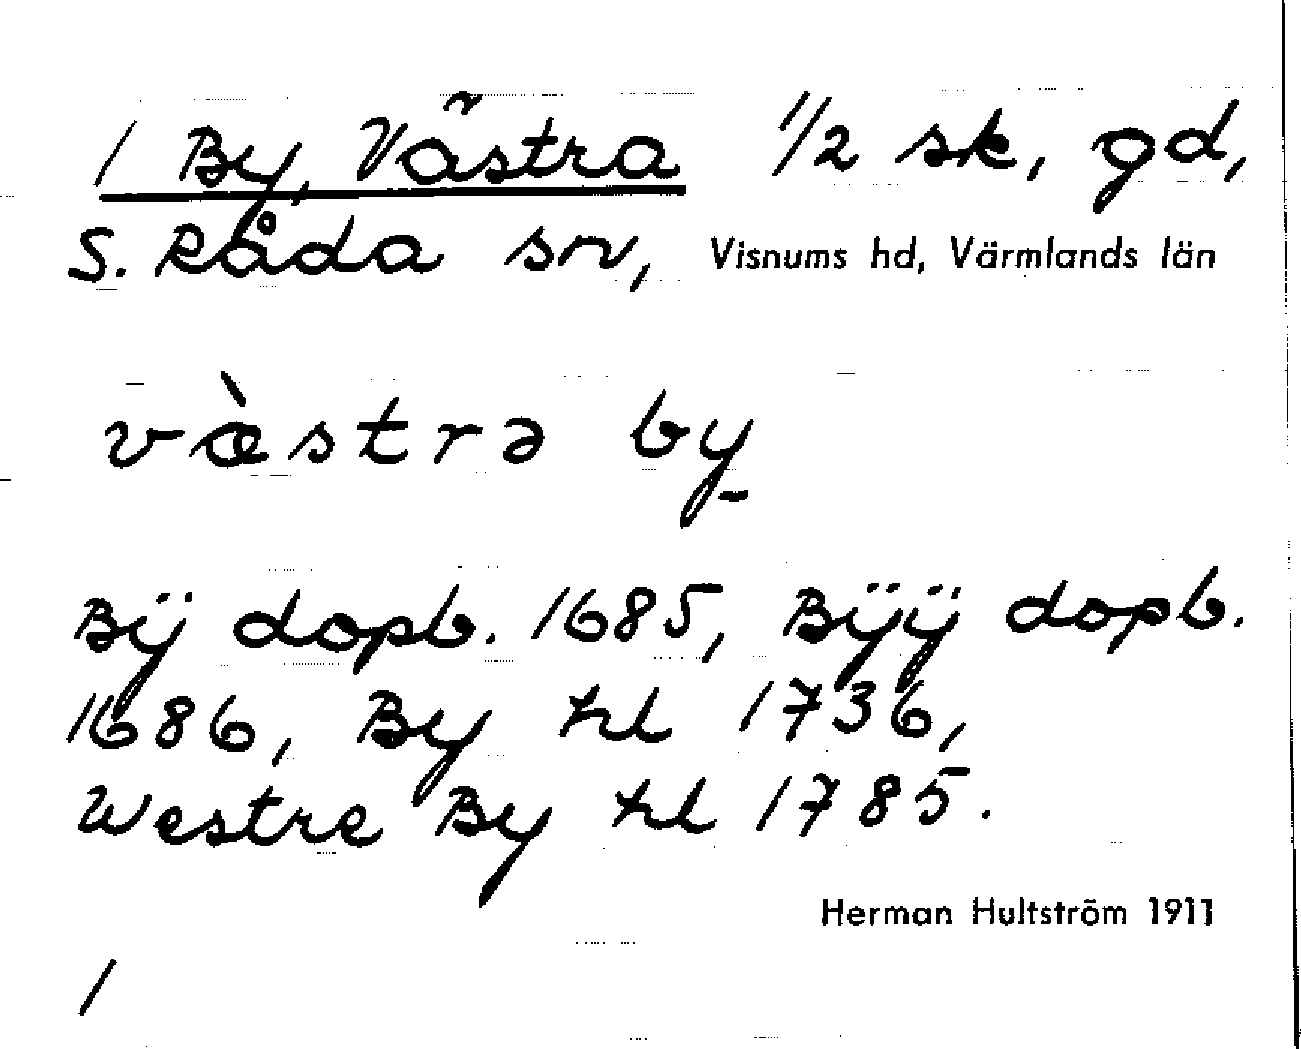 / By, Västra 1/2 sk, gd,
S. Råda sn, Visnums hd, Värmlands län
væ̀strə by̱
Bÿ dopb. 1685, Bÿÿ dopb.
1686, By hl 1736,
Westre By hl 1785.
Herman Hultström 1911
/